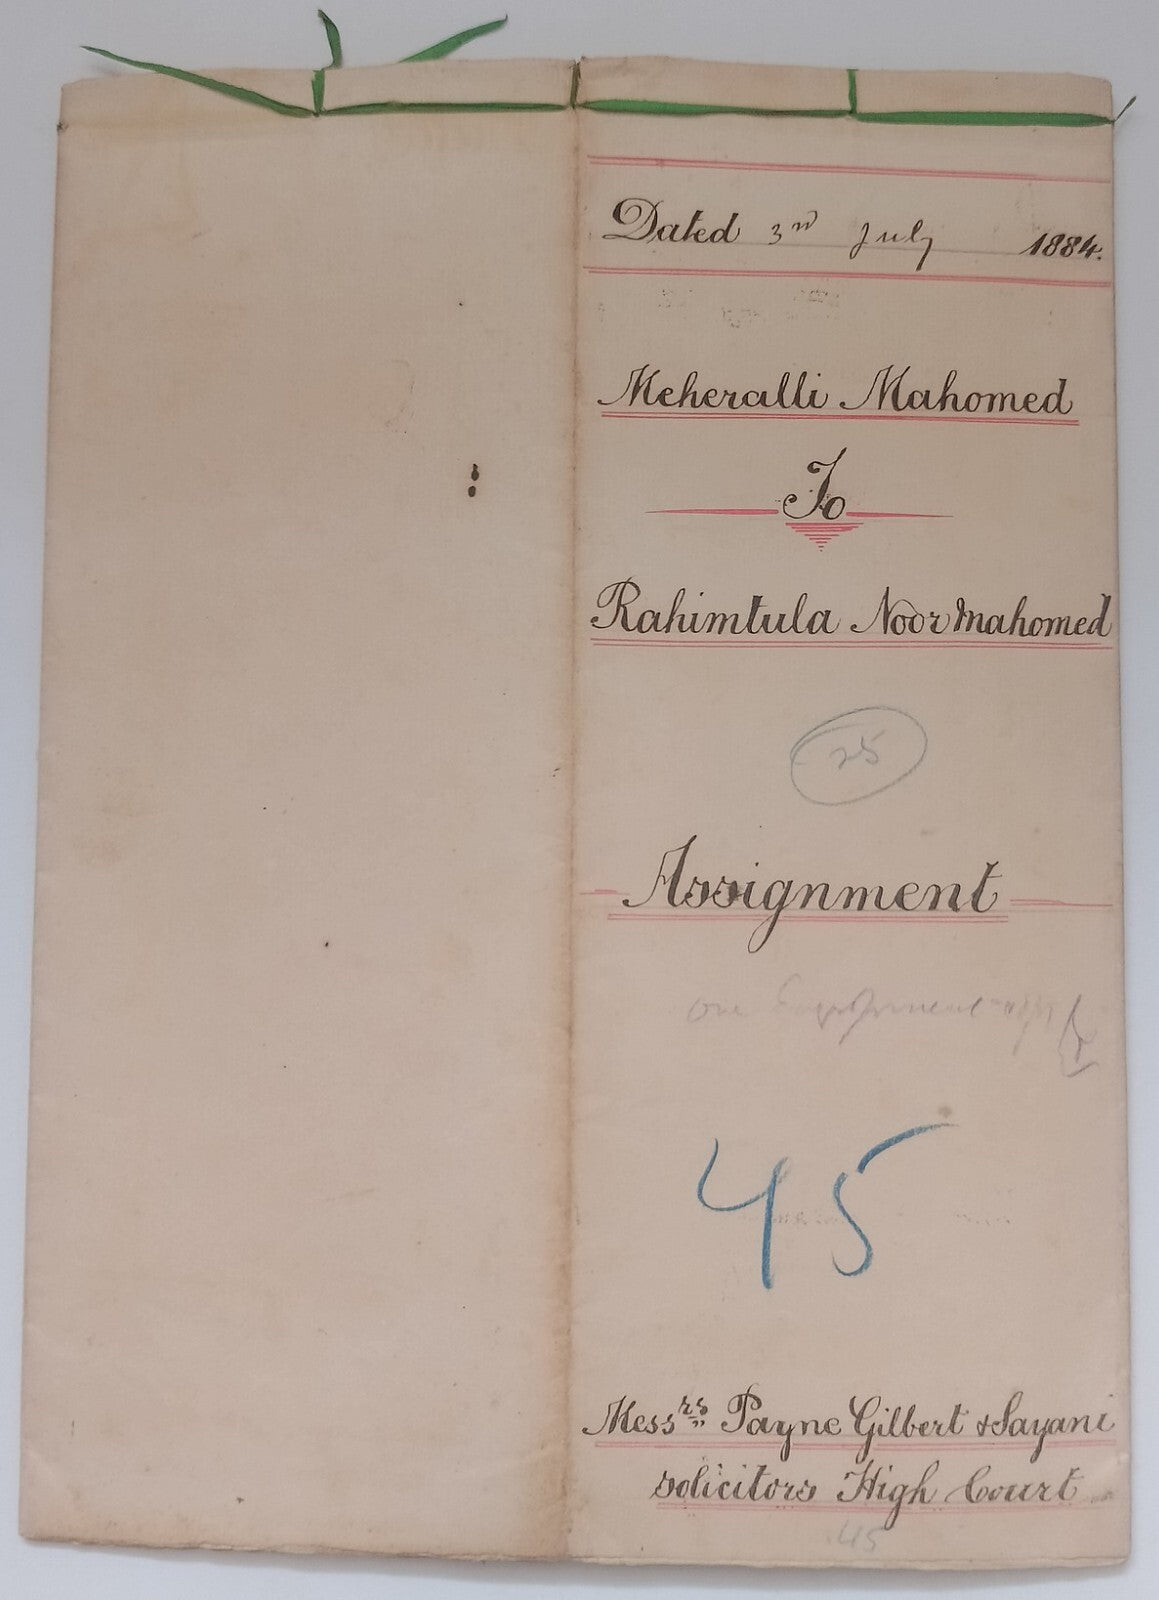 Dated 3rd July 1884.
Meheralli Mahomed
To
Rahimtula Noormahomed
25
Assignment
45
Messrs Payne Gilbert & Sayani
solicitors High Court
45